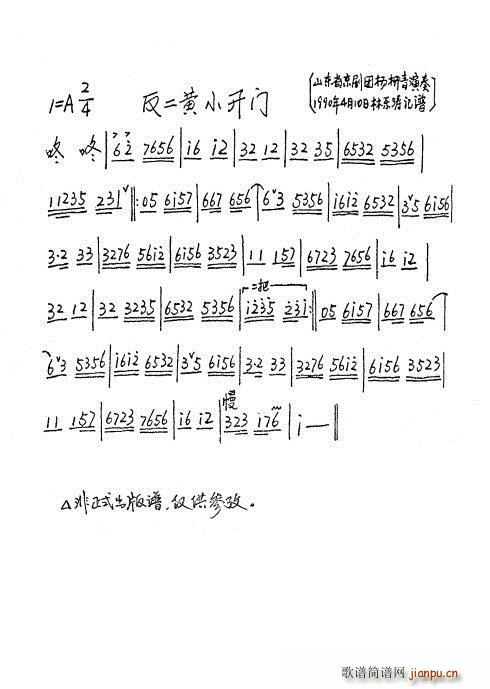 1=A 2/4 反二黄小开门 (山东省京剧团杨柳青演奏
1990年4月10日林东瑞记谱)
咚 咚 | 6 2̇ 7656 | i6 i2 | 32 12 | 32 35 | 6532 5356 |
11235 231ˇ ‖: 05 6i57 | 667 656 | 6ˇ3 5356 | i6i2̇ 6532 | 3ˇ5 6i56 |
3·2 33 | 3276 56i2̇ | 6i56 3523 | 11 157 | 6723 7656 | i6 i2 |
32 12 | 32 3235 | 6532 5356 | i2̇3̇5̇ 2̇3̇i :‖ 05 6i57 | 667 656 |
6ˇ3 5356 | i6i2̇ 6532 | 3ˇ5 6i56 | 3·2 33 | 3276 56i2̇ | 6i56 3523 |
慢
11 157 | 6723 7656 | i6 i2 | 323 i76 | i — ‖
△非正式出版谱,仅供参改。
歌谱简谱网
jianpu.cn